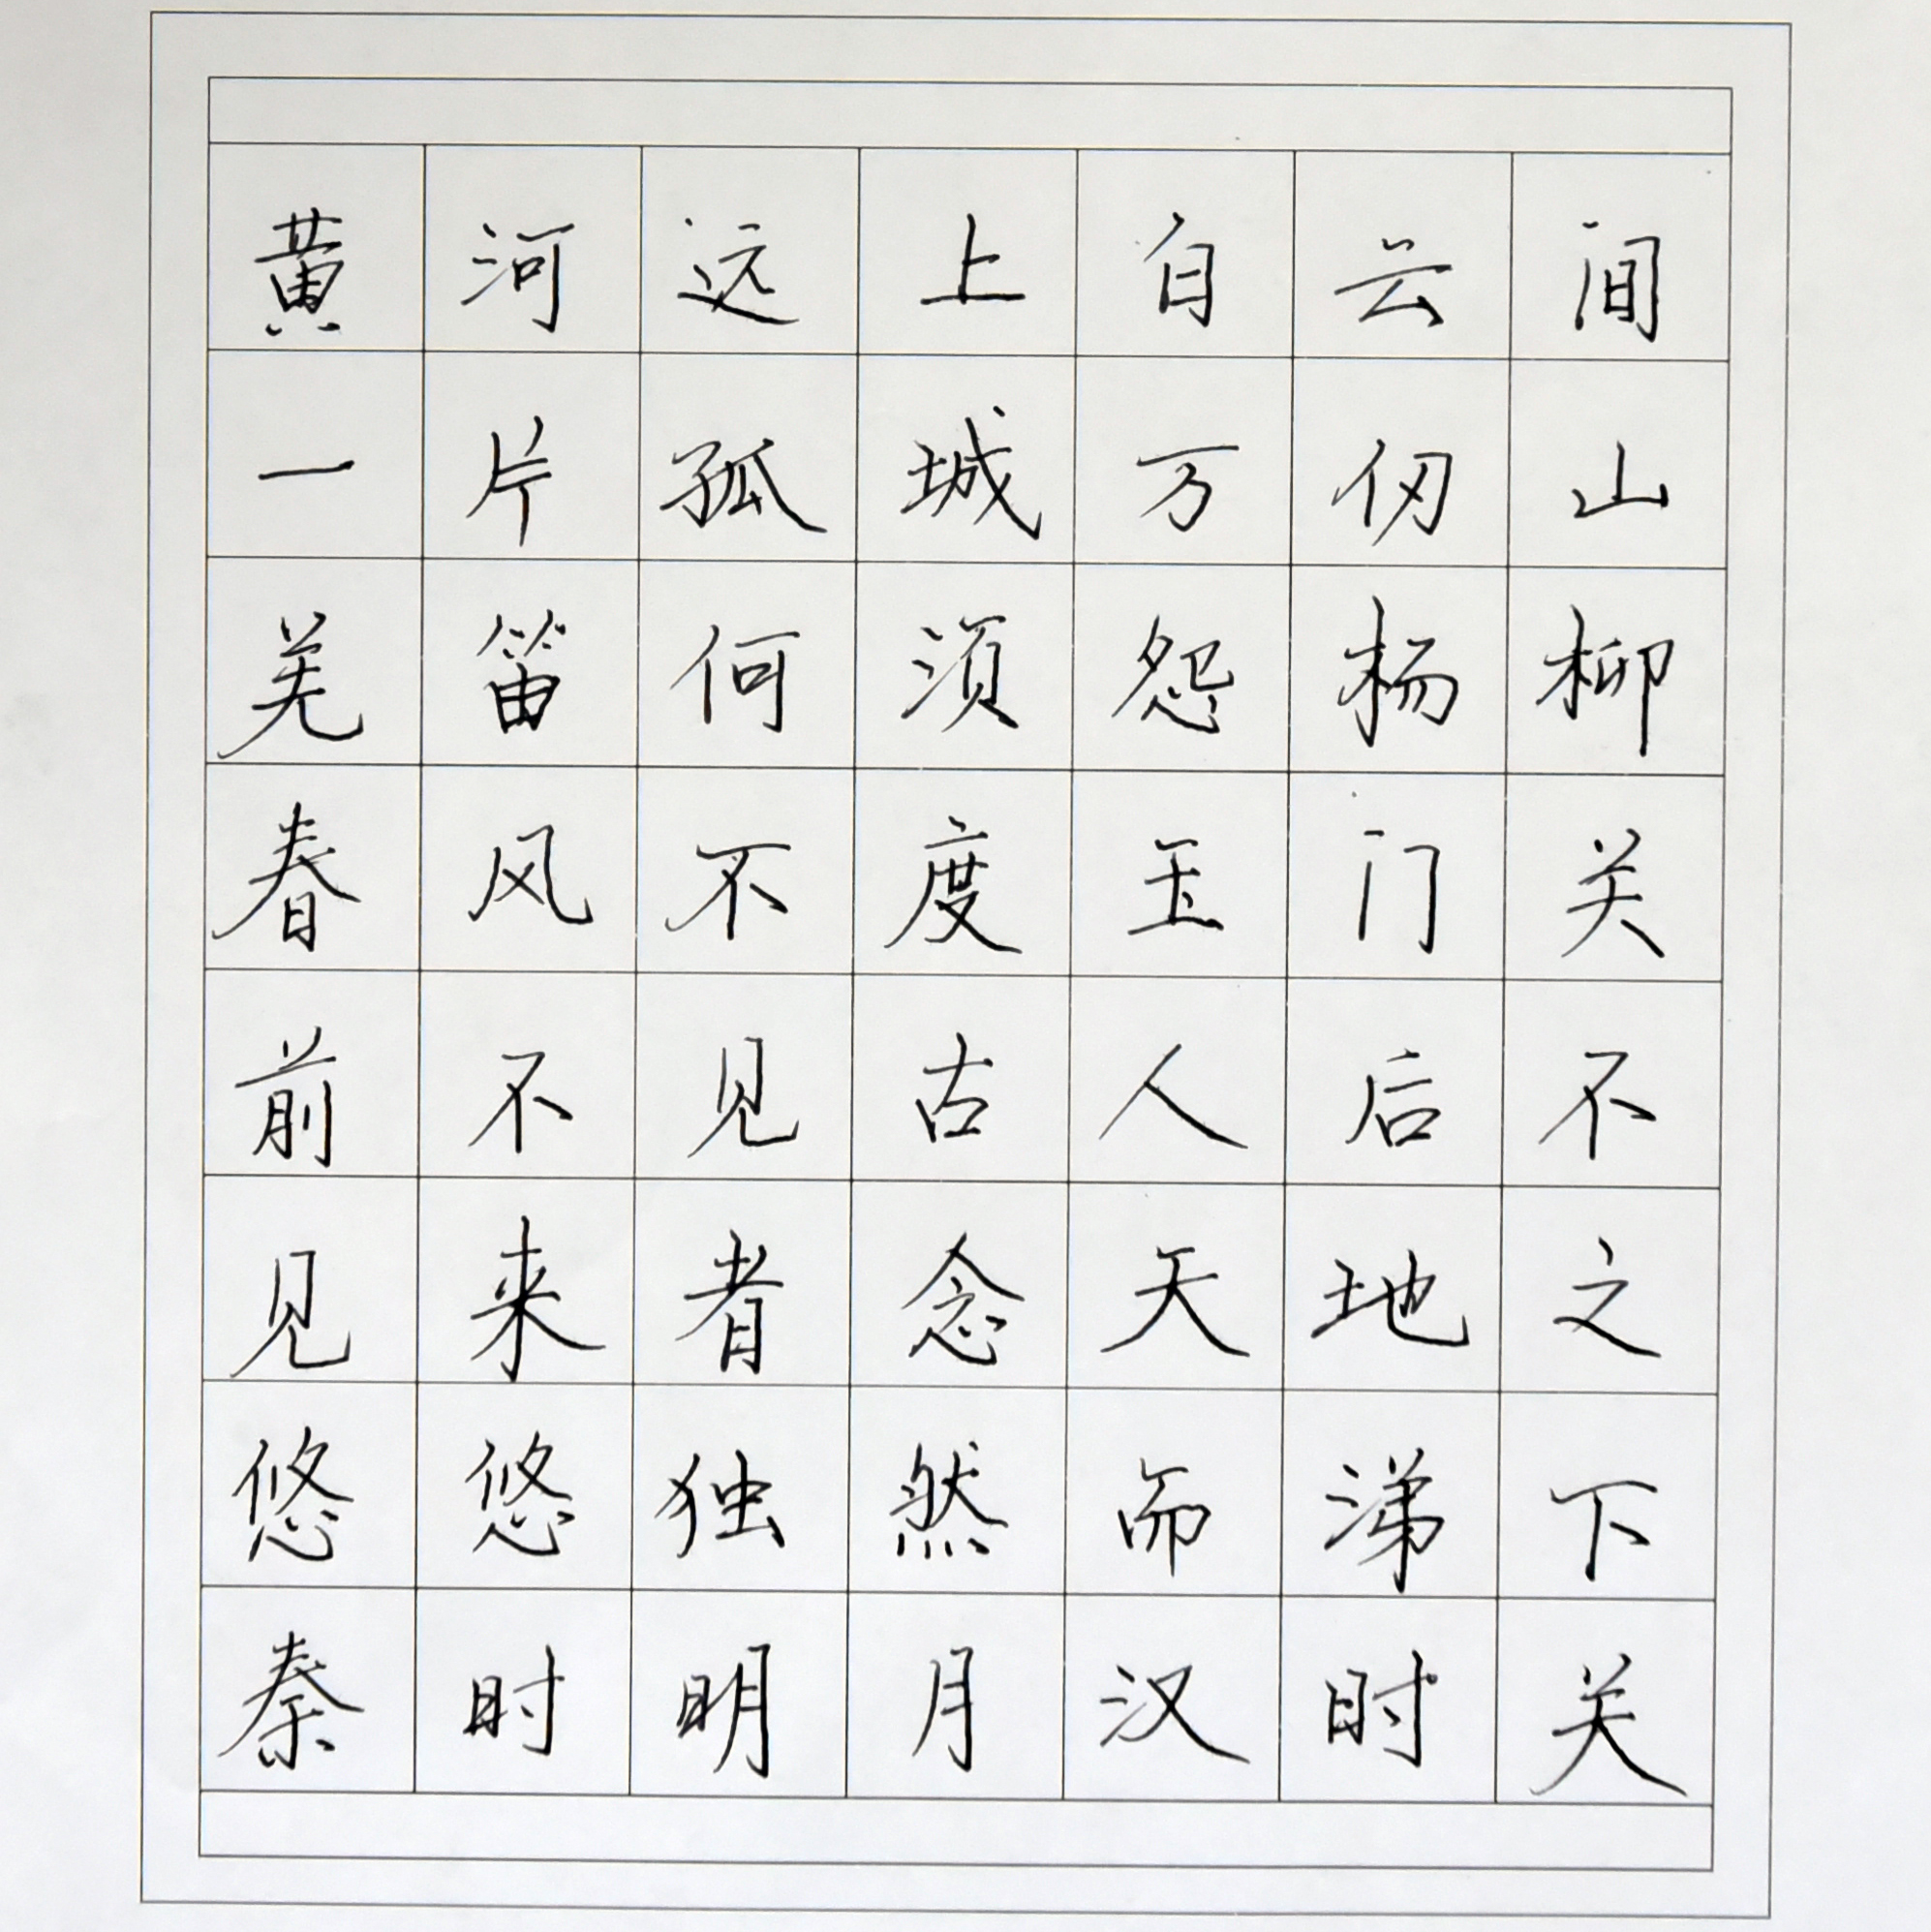 黄河远上白云间
一片孤城万仞山
羌笛何须怨杨柳
春风不度玉门关
前不见古人后不
见来者念天地之
悠悠独然而涕下
秦时明月汉时关